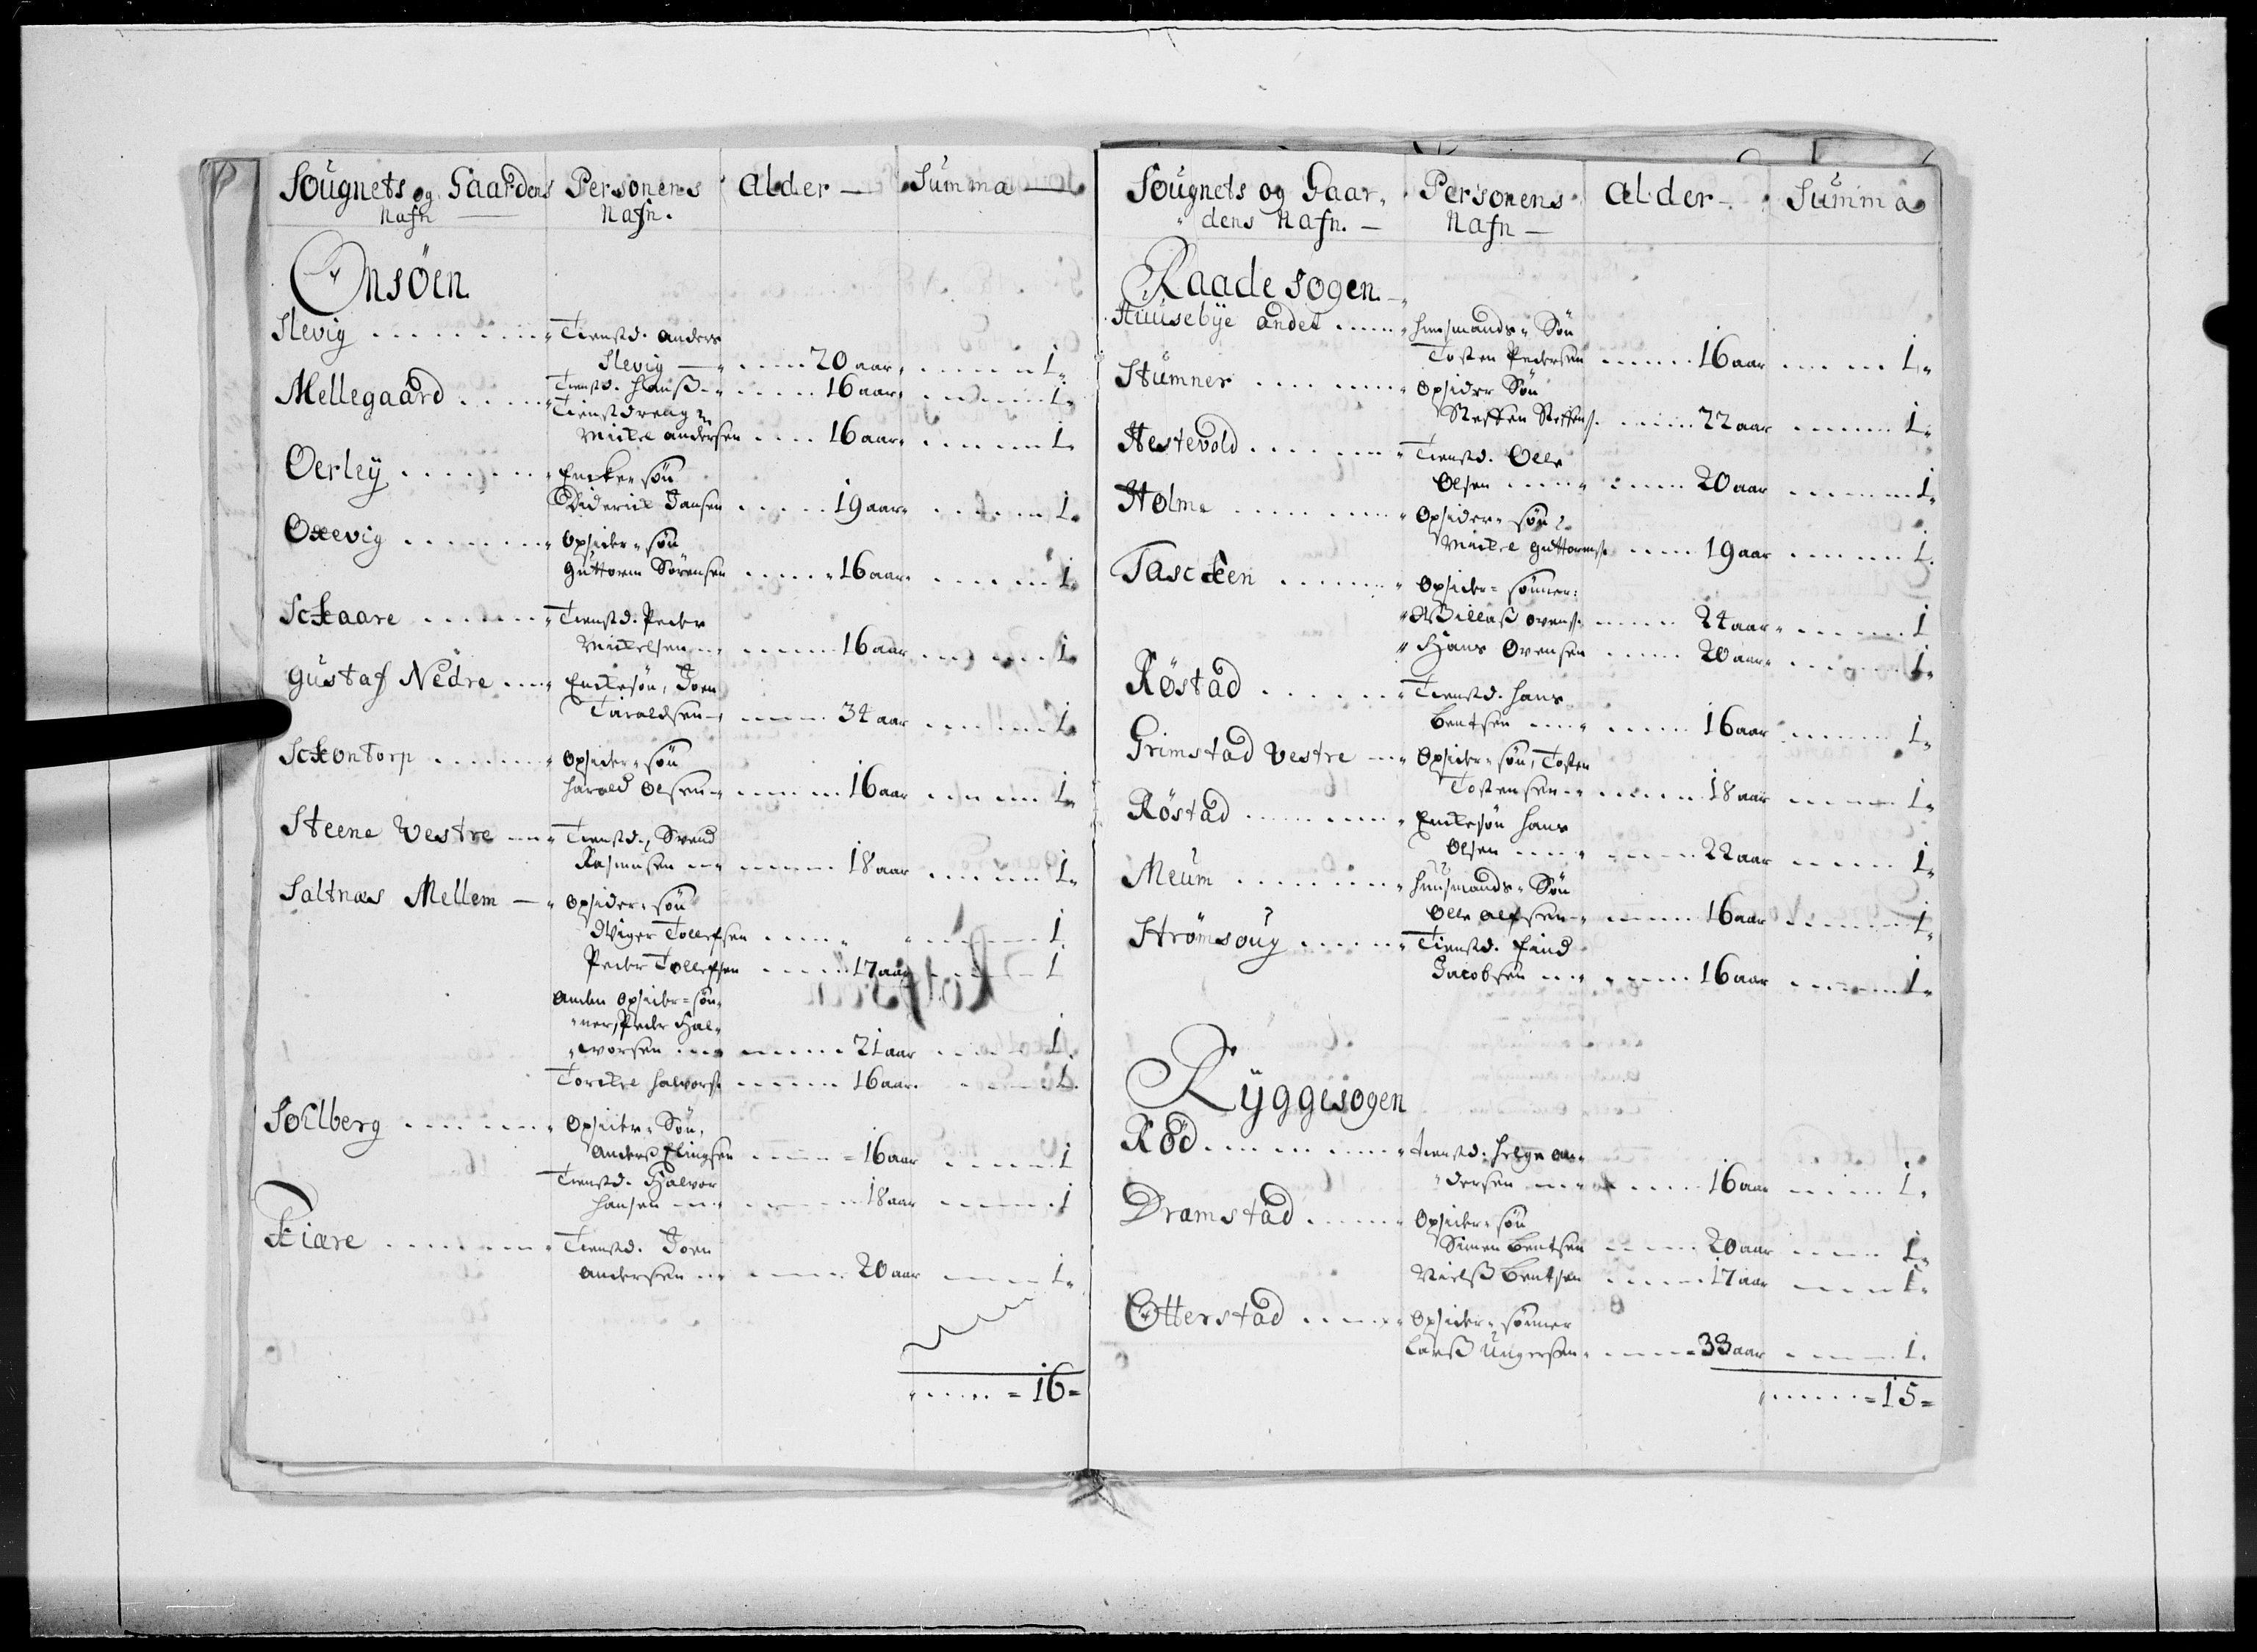 Sougnets og Gaardens Nafn — Personens Nafn. Alder — Summa —
Onsöen
Slevig . . . . . . . . . Tienstd. Anders
Slevig — . . . . 20 aar . . . . 1.
Mellegaard . . . . Tienstd. Hanß . . . . 16 aar . . . . 1.
Tienstdreng
Mickel Andersen . . . . 16 aar . . . . 1.
Oerleÿ . . . . . . Encke-søn
Diderick Jansen . . . . 19 aar . . . . 1.
Oxevig . . . . . . Opsider-søn
Guttorm Sörensen . . . . 16 aar . . . . 1.
Sckaare . . . . . . Tienstd. Peder
Mickelsen . . . . 16 aar . . . . 1.
Gustaf Nedre . . . . Enckesøn, Joen
Taraldsen . . . . 34 aar . . . . 1.
Sckontorp . . . . . . Opsider-søn
Harald Olsen . . . . 16 aar . . . . 1.
Steene Vestre . . . . Tienstd., Svend
Rasmusen . . . . 18 aar . . . . 1.
Saltnæs Mellem — Opsider-søn
Tollefsen . . . . 1.
Peder Tollefsen . . . . 17 aar . . . . 1
Anden Opsider-søn-
ner, Peder Hal-
worsen . . . . 21 aar . . . . 1.
Torckel Halvors. . . . . 16 aar . . . . 1.
Sollberg . . . . . . Opsider-Søn,
Anders Elingsen . . . . 16 aar . . . . 1
Tienstd. Halvor
Hansen . . . . 18 aar . . . . 1
Kiære . . . . . . Tienstd. Joen
Andersen . . . . 20 aar . . . . 1.
. . . . . . = 16 =
Sougnets og Gaar-
dens Nafn. — Personens Nafn — Alder — Summa
Raade sogen. —
Huusebÿe andet . . . . Huusmands-Søn
Tosten Pedersen . . . . 16 aar . . . . 1.
Stumner . . . . . . Opsider Søn
Steffen Steffens. . . . . 22 aar . . . . 1.
Hestevold . . . . . . Tienstd. Olle
Olsen . . . . 20 aar . . . . 1.
Holme . . . . . . Opsider-søn
Mickel Guttorms. . . . . 19 aar . . . . 1.
Tascken . . . . . . Opsider-sønner:
Ovens. . . . . 24 aar . . . . 1
Hans Ovensen . . . . 20 aar . . . . 1.
Röstad . . . . . . Tienstd. Hans
Bentsen . . . . 16 aar . . . . 1.
Grimstad Vestre . . . Opsider-søn, Tosten
Tostensen . . . . 18 aar . . . . 1.
Röstad . . . . . . Enckesøn Hans
Olsen . . . . 22 aar . . . . 1.
Meum . . . . . . Huusmands-Søn
Olle Alfsen . . . . 16 aar . . . . 1.
Strömsoug . . . . . . Tienstd. Find
Jacobsen . . . . 16 aar . . . . 1.
Rÿggesogen
Röd . . . . . . Tienstd. Helge An-
dersen . . . . 16 aar . . . . 1.
Dramstad . . . . . . Opsider-søn
Simen Bentsen . . . . 20 aar . . . . 1.
Nielß Bentsen . . . . 17 aar . . . . 1.
Otterstad . . . . . . Opsider-sønner
Larß Ungersen . . . . 33 aar . . . . 1.
. . . . . . = 15 =